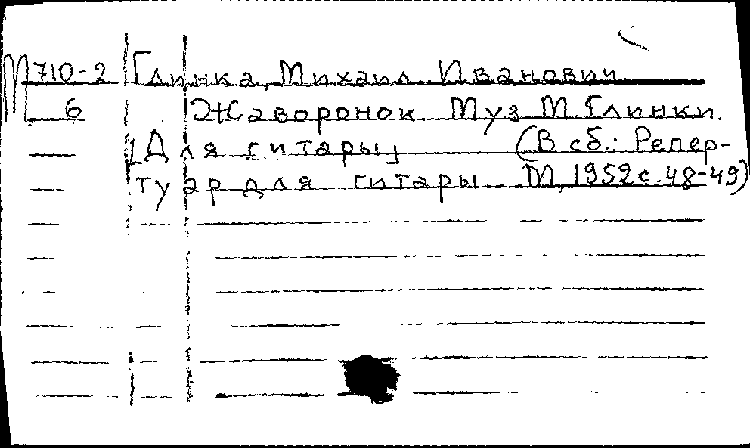 М710-2 Глинка, Михаил Иванович
6 Жаворонок. Муз М. Глинки.
[Для гитары] (В сб.: Репер-
туар для гитары. М, 1952 с 48-49)